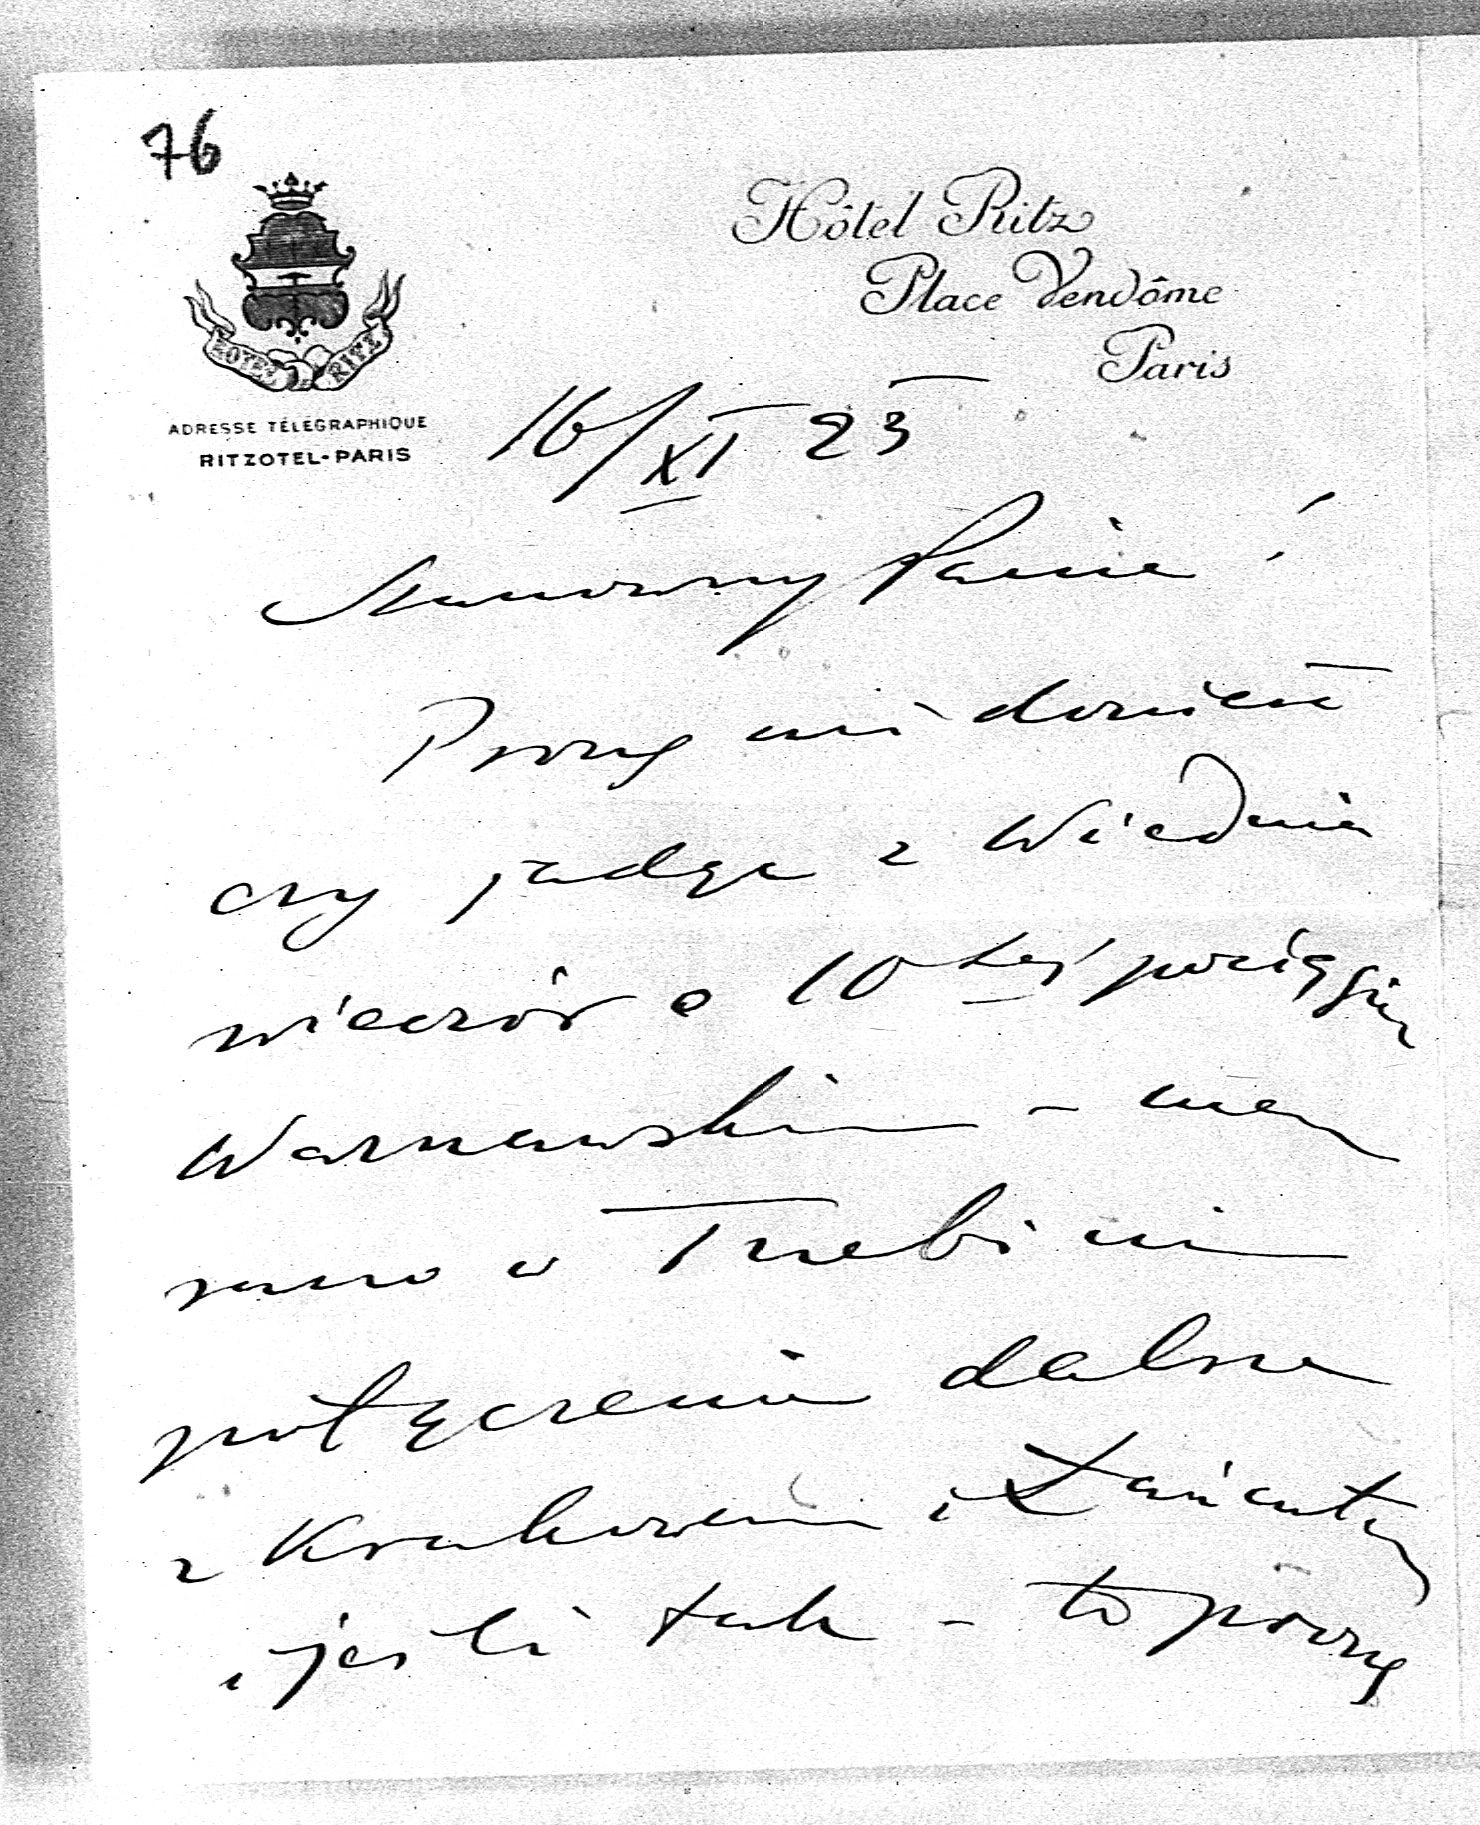 76
Hôtel Ritz
Place Vendôme
Paris
HOTEL RITZ
ADRESSE TÉLÉGRAPHIQUE
RITZOTEL-PARIS
16/XI 25
Szanowny Panie!
Proszę mi donieść
czy jadąc z Wiednia
wieczór o 10tej pociągiem
Warszawskim – mam
rano w Trzebini
połączenie dalsze
z Krakowem i Łańcutem
i jeśli tak – to proszę